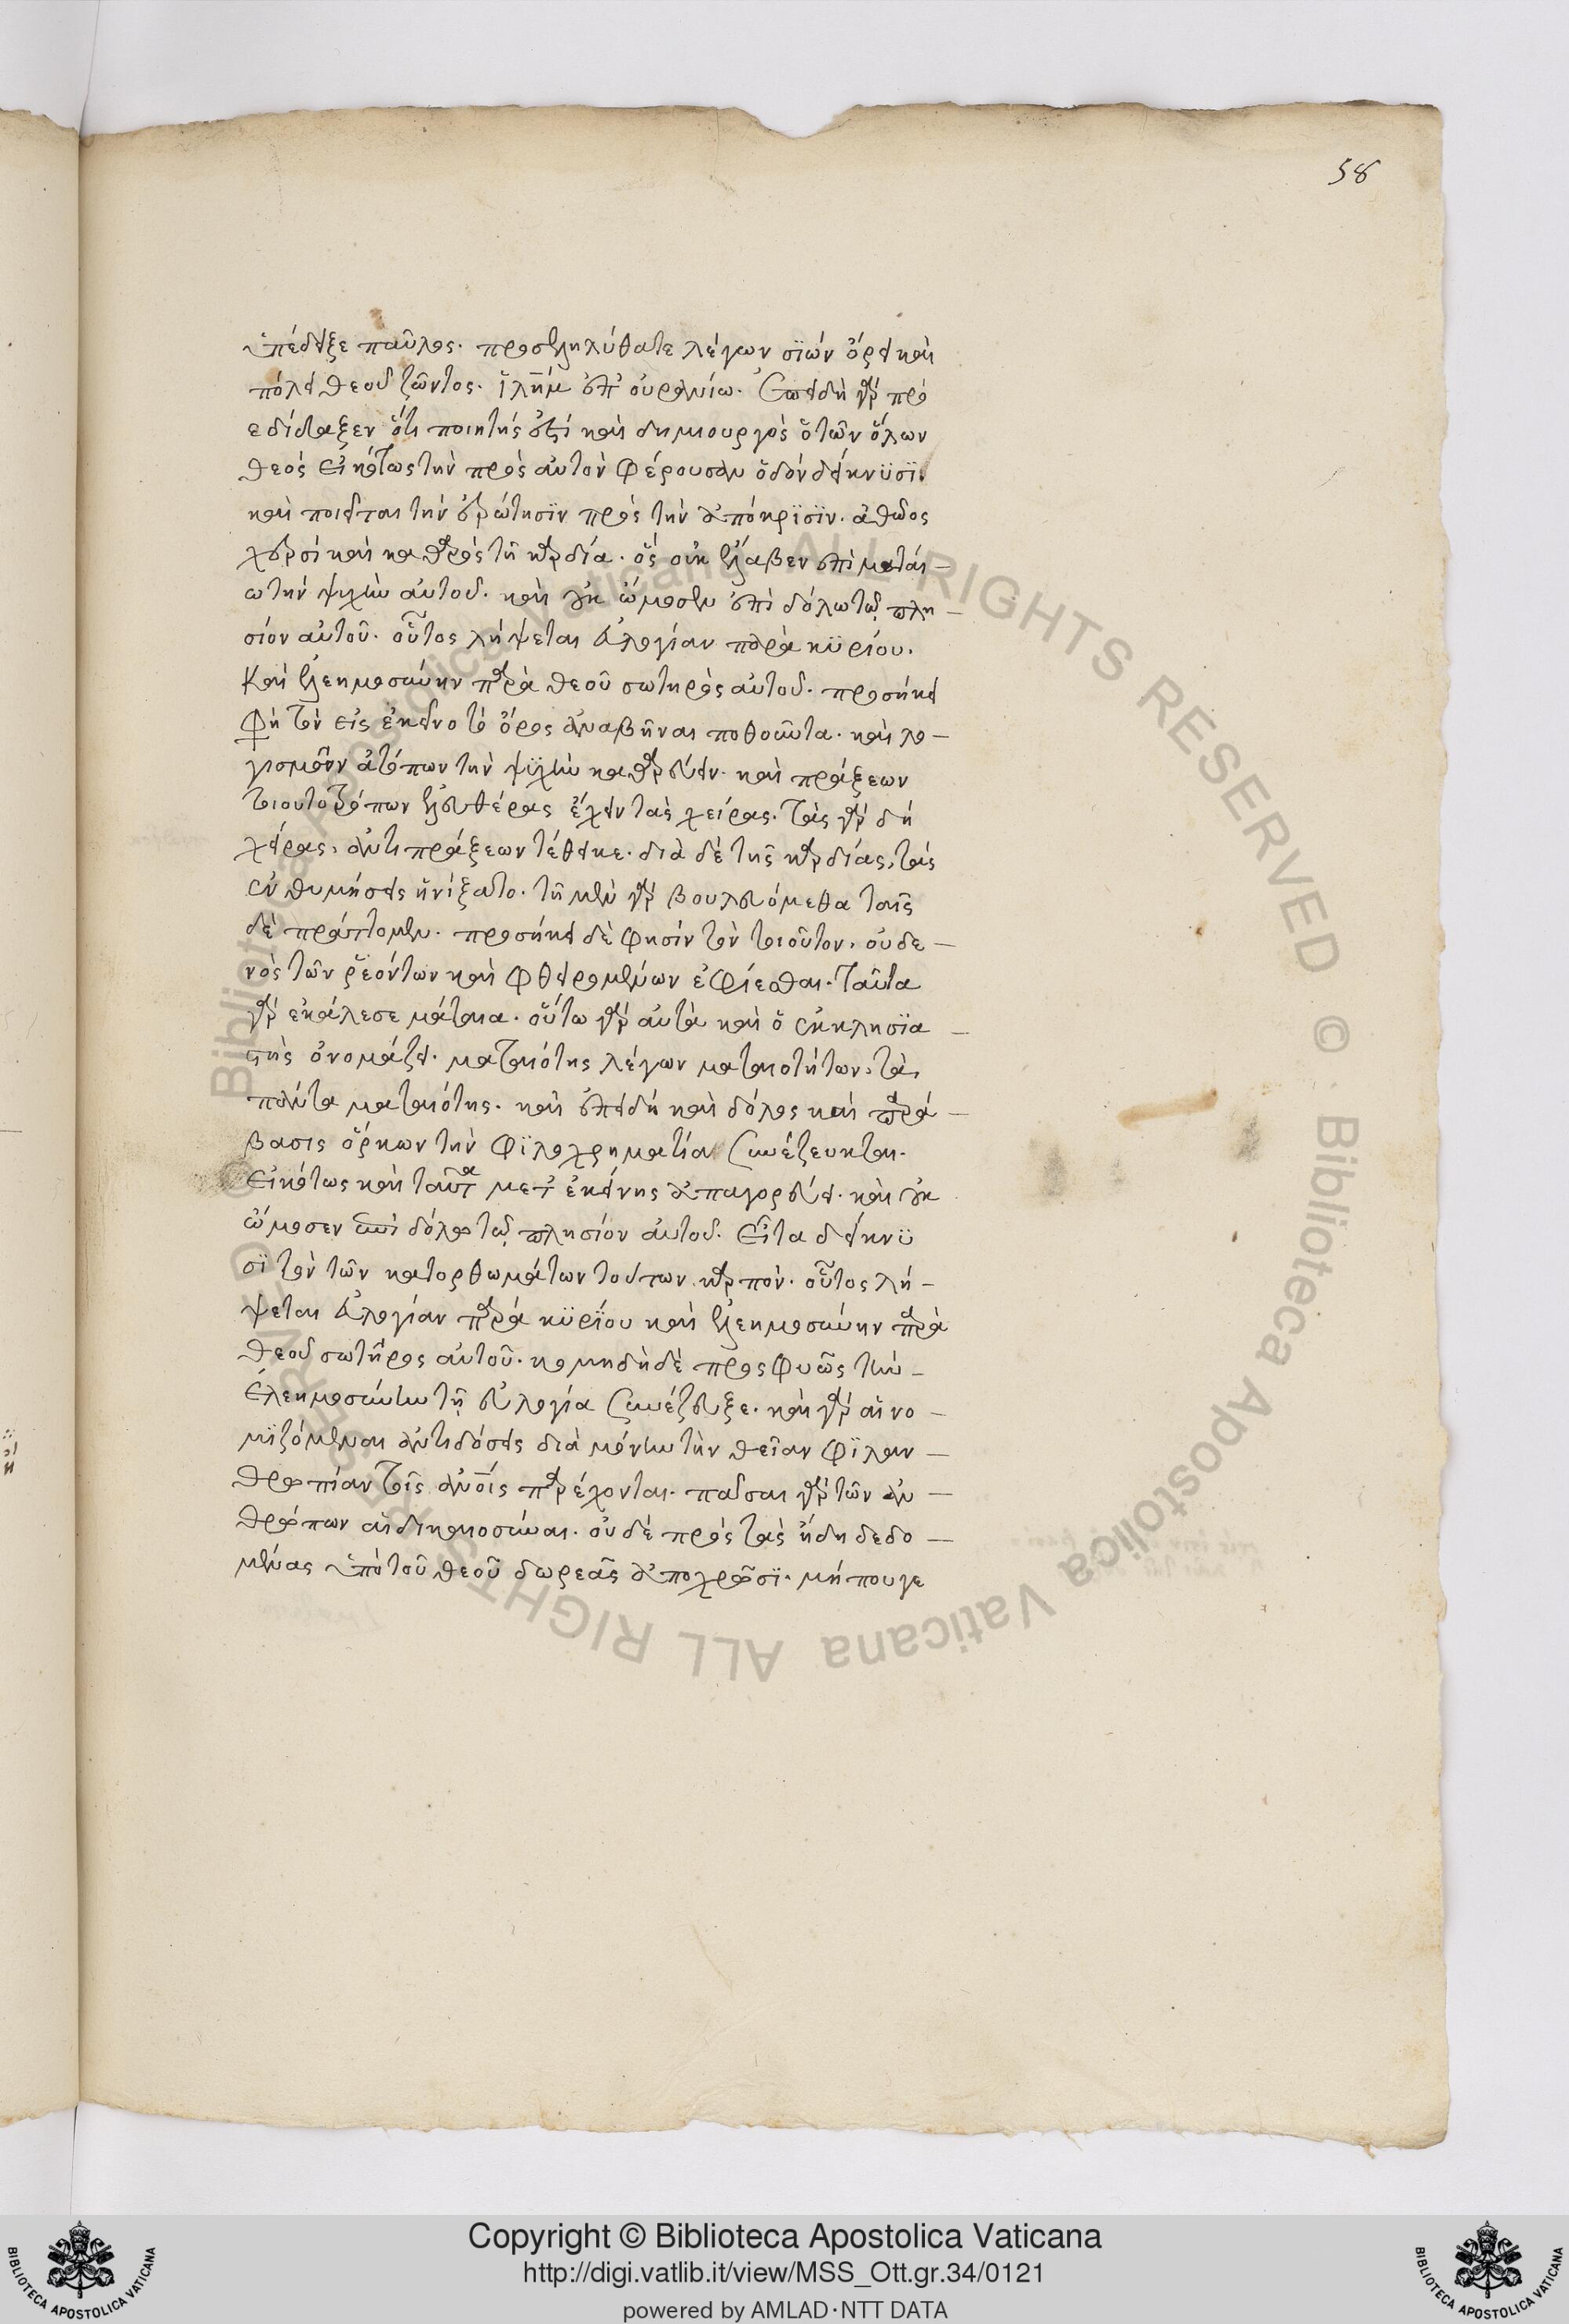 58
ὑπέδειξε παῦλος. προσεληλύθατε λέγων σϊών ὄρει καὶ
πόλει θεοῦ ζῶντος. ϊλη̅μ ἐπουρανίω. Ἐπειδὴ γὰρ προ
εδίδαξεν ὅτι ποιητής ἐστί καὶ δημιουργὸς ὁ τῶν ὅλων
θεὸς εἰκότως τὴν πρὸς αὐτὸν φέρουσαν ὁδὸν δείκνϋσϊν
καὶ ποιεῖται τὴν ἐρώτησϊν πρὸς τὴν ἀπόκρϊσϊν. ἀθῶος
χερσὶ καὶ καθαρὸς τῆ καρδία. ὃς οὐκ ἔλαβεν ἐπὶ ματαί-
ω τὴν ψυχὴν αὐτοῦ. καὶ οὐκ ὤμοσεν ἐπὶ δόλω τῷ πλη-
σίον αὐτοῦ. οὗτος λήψεται εὐλογίαν παρὰ κϋρίου.
Καὶ ἐλεημοσύνην παρὰ θεοῦ σωτηρὸς αὐτοῦ. προσήκει
φὴ τὸν εἰς ἐκεῖνο τὸ ὄρος ἀναβῆναι ποθοῦντα. καὶ λο-
γισμῶν ἀτόπων τὴν ψϋχὴν καθαρεύειν. καὶ πράξεων
τοιουτοτρόπων ἐλευθέρας ἔχειν τὰς χείρας. τὰς γὰρ δὴ
χεῖρας, ἀντὶ πράξεων τέθεικε. διὰ δὲ τῆς καρδίας, τὰς
ἐνθυμήσεις ἠνίξατο. τῆ μὲν γὰρ βουλευόμεθα ταῖς
δὲ πράττομεν. προσήκει δὲ φησὶν τὸν τοιοῦτον, οὐδε-
νὸς τῶν ῥεόντων καὶ φθειρομένων ἐφίεσθαι. ταῦτα
γὰρ ἐκάλεσε μάταια. οὕτω γὰρ αὐτὰ καὶ ὁ ἐκκλησϊα-
στὴς ὀνομάζει. ματαιότης λέγων ματαιοτήτων, τὰ
πάντα ματαιότης. καὶ ἐπειδὴ καὶ δόλος καὶ παρά-
βασις ὅρκων τὴν φϊλοχρηματία συνέζευκται.
Εἰκότως καὶ ταῦτα μετ' ἐκείνης ἀπαγορεύει. καὶ οὐκ
ὤμοσεν ἐπὶ δόλω τῷ πλησίον αὐτοῦ. Εἶτα δείκνϋ
σϊ τὸν τῶν κατορθωμάτων τούτων καρπὸν. οὗτος λή-
ψεται εὐλογίαν παρὰ κϋρϊου καὶ ἐλεημοσύνην παρὰ
θεοῦ σωτῆρος αὐτοῦ. κομηδὴ δὲ προσφυῶς τὴν-
ἐλεημοσύνην τῇ εὐλογία συνέζευξε. καὶ γὰρ αἱ νο-
μϊζόμεναι ἀντιδόσεις διὰ μόνην τὴν θεῖαν φϊλαν-
θρωπίαν τοῖς ἀν̅οις παρέχονται. πᾶσαι γὰρ τῶν ἀν-
θρώπων αἱ δικαιοσύναι. οὐδὲ πρὸς τὰς ἤδη δεδο-
μένας ὑπὸ τοῦ θεοῦ δωρεᾶς ἀποχρῶσϊ. μή που γε
Copyright © Biblioteca Apostolica Vaticana
http://digi.vatlib.it/view/MSS_Ott.gr.34/0121
powered by AMLAD·NTT DATA
BIBLIOTECA APOSTOLICA VATICANA
BIBLIOTECA APOSTOLICA VATICANA
© Biblioteca Apostolica Vaticana ALL RIGHTS RESERVED © Biblioteca Apostolica Vaticana ALL RIGHTS RESERVED